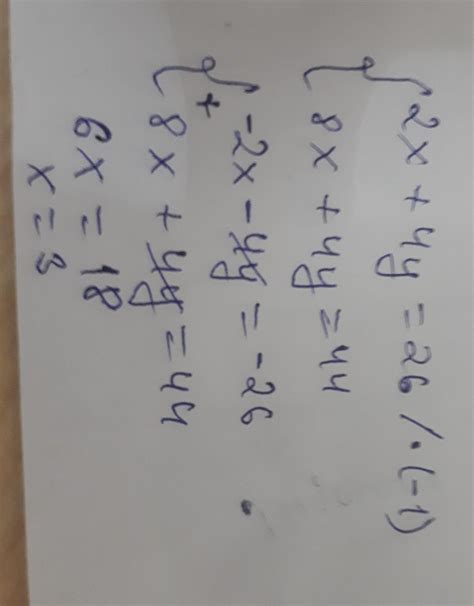 2x + 4y = 26 / · (-1)
8x + 4y = 44
-2x - 4y = -26
+
8x + 4y = 44
6x = 18
x = 3